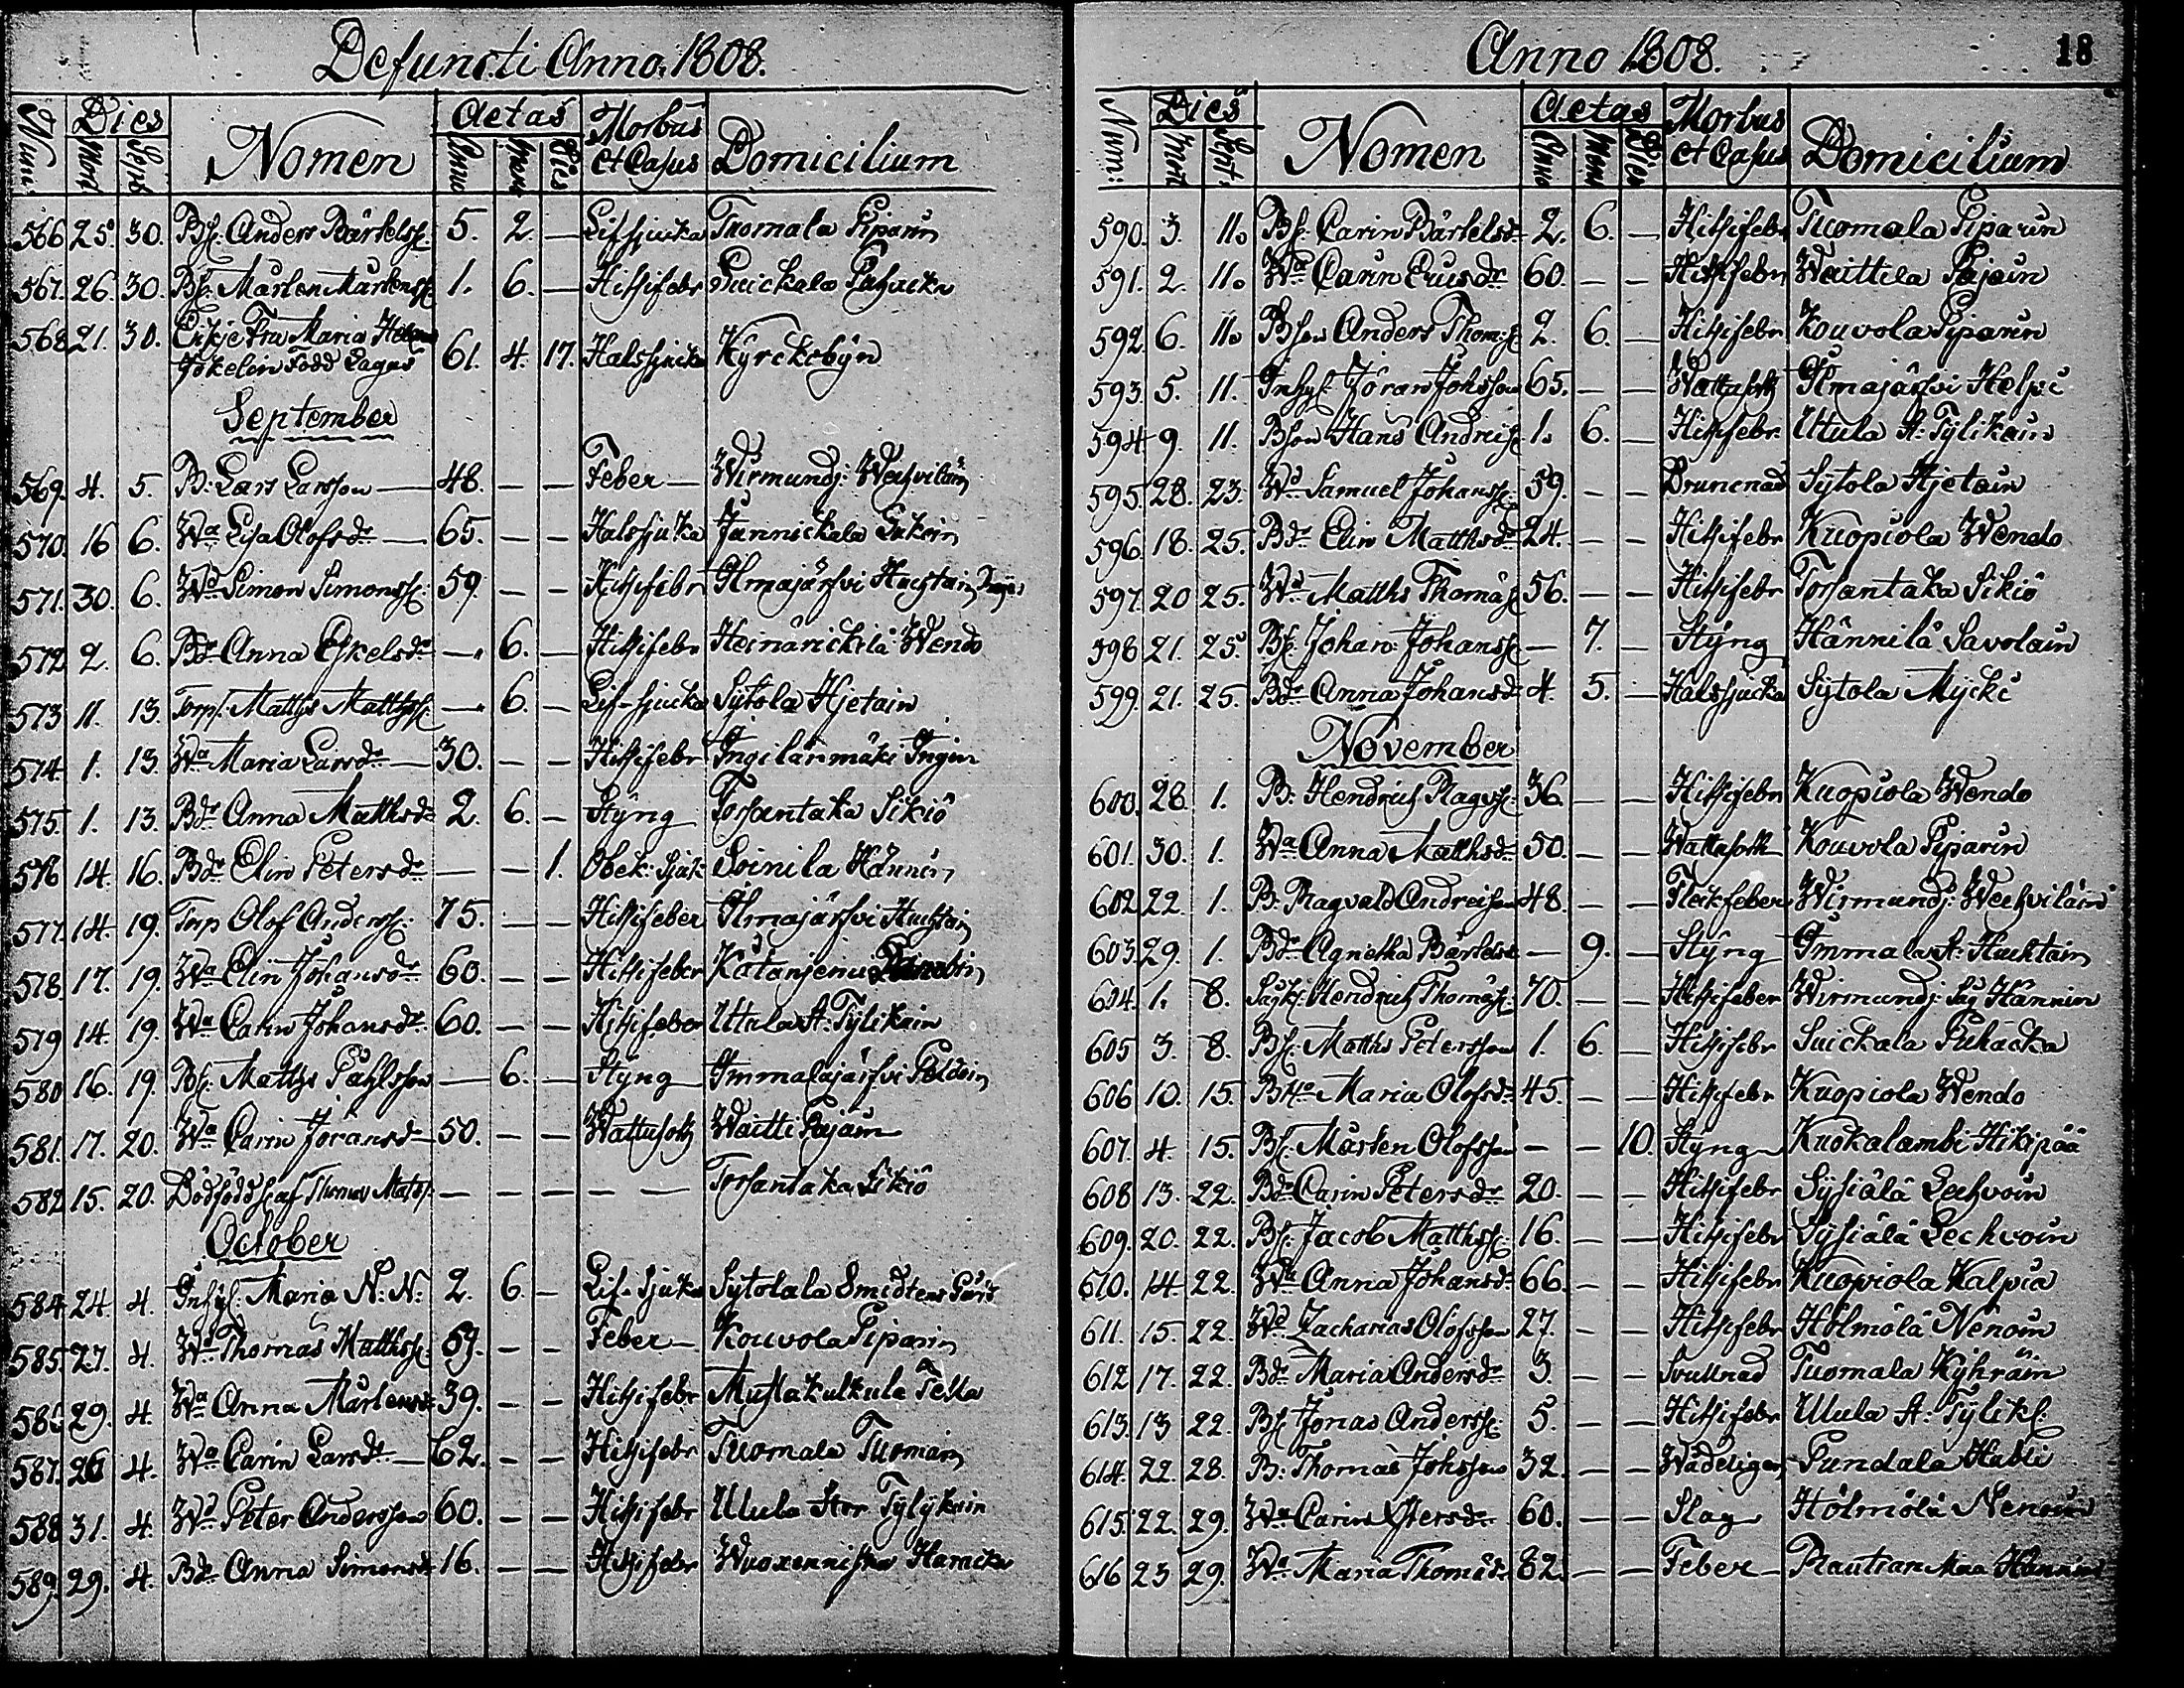 Defuncti Anno 1808.
Num: Dies Nomen Aetas Morbus Domicilium
Mort Sept Anni Mens Dies et Casus
566 25. 30. Bs: Anders Bärtelss: 5. 2. — Lifsjucka Tuomala Piparin
567. 26. 30. Bs: Mårten Mårtenss: 1. 6. — Hitsifebr Suickala
568 21. 30. Enkje Fru Maria
född Lagus 61. 4. 17. Halssjucka Kyrckobyn
September
569. 4. 5. B: Lars Larsson — 48. — — Feber — Wirmundj: Wechviläin
570. 16 6. Wa Lisa Olofsdr — 65. — — Halssjuka Jännickälä
571. 30. 6. Wd Simon Simonss: 59. — — Hitsifebr Ilmajärfvi Huchtain
572 2. 6. Bdr Anna Eskelsdr — 6. — Hitsifebr Heinärickilä Wendo
573 11. 13. Torp: Matths Matthss: — 6. — Lif-sjucka Sytola Hjetain
574 1. 13. Wa Maria Larsdr — 30. — — Hitsifebr Ingilänmäki Ingin
575. 1. 13. Bdr Anna Matthsdr 2. 6. — Styng Torsantaka Sikiö
576 14. 16. Bdr Elin Petersdr — — 1. Obek: Sjuk Soinila Hännin
577. 14. 19. Torp Olof Anderss: 75. — — Hitsifeber Ilmajärfvi Huchtain
578. 17. 19. Wa Elin Johansdr 60. — — Hitsifeber
579 14. 19. Wa Carin Johansdr 60. — — Hitsifeber Utula A: Tylikain
580 16. 19. Bs: Matths Påhlsson — 6. — Styng Immalajärfvi
581. 17. 20. Wa Carin Jöransdr 50. — — Wattusott Waitti Pajain
582 15. 20. Dödfödd s: af Thomas Matss: — — — — — Torsantaka Sikiö
October
584 24. 4. Inhys: Maria N: N: 2. 6. — Lif-sjuka Sytolala
585. 27. 4. Wd Thomas Matthss: 59. — — Feber — Kouvola Piparin
586 29. 4. Wa Anna Mårtensdr 39. — — Hitsifebr
587. 26 4. Wa Carin Larsdr — 62. — — Hitsifebr Tuomala Tuomain
588 31. 4. Wd Peter Andersson 60. — — Hitsifebr Utula Stor Tylykain
589. 29. 4. Bdr Anna Simonsdr 16. — — Hitsifebr Wuoxenniska
Anno 1808. 18
Num: Dies Nomen Aetas Morbus Domicilium
Mort Sept: Anni Mens Dies et Casus
590. 3. 11. Bs: Carin Bärtelsdr 2. 6. — Hitsifebr Tuomala Piparin
591. 2. 11. Wa Carin Ericsdr 60. — — Hitsifebr Waittila Pajain
592 6. 11. Bson Anders Thomss: 2. 6. — Hitsifebr Kouvola Piparin
593. 5. 11. Inhys: Jöran Johsson 65. — — Wattusott Ilmajärfvi
594 9. 11. Bson Hans Andreiss: 1. 6. — Hitsifebr Utula A: Tylikain
595. 28. 23. Wd Samuel Johanss: 59. — — Druncnad Sytola Hjetain
596. 18. 25. Bdr Elin Matthsdr 24. — — Hitsifebr Kuopiola Wendo
597. 20 25. Wd Matths Thomass: 56. — — Hitsifebr Torsantaka Sikiö
598 21. 25. Bs: Johan Johanss: — 7. — Styng Hännilä Savolain
599. 21. 25. Bdr Anna Johansdr 4. 5. — Halssjucka Sytola Mycki
November
600. 28. 1. B: Hendrich Ragvss: 36. — — Hitsifebr Kuopiola Wendo
601. 30. 1. Wa Anna Matthsdr 50. — — Wattusott Kouvola Piparin
602 22. 1. B: Ragvald Andreisson 48. — — Fleckfeber Wirmundj: Wechviläin
603. 29. 1. Bdr Agnetha Bärtelsdr — 9. — Styng Immala A: Huchtain
604. 1. 8. Hendrich Thomass: 70. — — Hitsifeber Wirmundj: Såg Hännin
605 3. 8. Bs: Matths Petersson 1. 6. — Hitsifebr Suickala Puhacka
606 10. 15. BHu Maria Olofsdr 45. — — Hitsifebr Kuopiola Wendo
607. 4. 15. Bs: Mårten Olofsson — — 10. Styng Kuokalambi Hikipää
608 13. 22. Bdr Carin Petersdr 20. — — Hitsifebr Syjsiälä Lechvoin
609. 20. 22. Bs: Jacob Matthss: 16. — — Hitsifebr Syjsiälä Lechvoin
610. 14. 22. Wa Anna Johansdr 66. — — Hitsifebr Kuopiola Kalpia
611. 15. 22. Wd Zacharias Olofsson 27. — — Hitsifebr Hölmölä Nenoin
612 17. 22. Bdr Maria Andersdr 3. — — Svullnad Tuomala Kyhräin
613. 13 22. Bs: Jonas Anderss: 5. — — Hitsifebr Utula A: Tylik:
614. 22. 28. B: Thomas Johsson 32. — — Wådeligen Pundala
615. 22. 29. Wa Carin Petersdr 60. — — Slag Hölmölä Nenoin
616 23 29. Wa Maria Thomædr 82. — — Feber — Rautianmaa Hännin